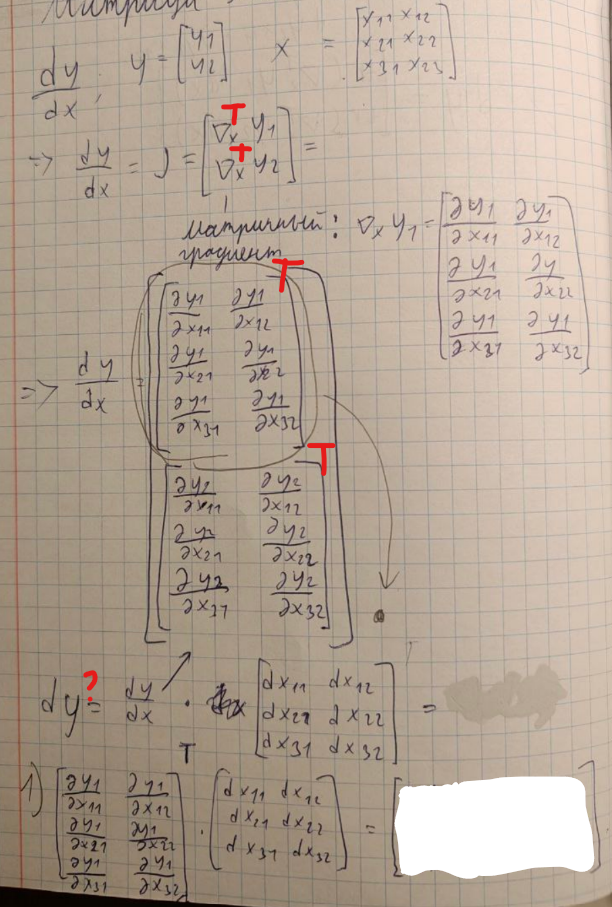 Матрицы
dy/dx; y = [y1; y2] x = [x11 x12; x21 x22; x31 x23]
=> dy/dx = J = [∇x^T y1; ∇x^T y2] =
матричный градиент: ∇x y1 = [∂y1/∂x11 ∂y1/∂x12; ∂y1/∂x21 ∂y/∂x22; ∂y1/∂x31 ∂y1/∂x32]
=> dy/dx = [[∂y1/∂x11 ∂y1/∂x12; ∂y1/∂x21 ∂y1/∂x22; ∂y1/∂x31 ∂y1/∂x32]^T
[∂y2/∂x11 ∂y2/∂x12; ∂y2/∂x21 ∂y2/∂x22; ∂y2/∂x31 ∂y2/∂x32]^T]
dy =? dy/dx · [dx11 dx12; dx21 dx22; dx31 dx32] =
1) [∂y1/∂x11 ∂y1/∂x12; ∂y1/∂x21 ∂y1/∂x22; ∂y1/∂x31 ∂y1/∂x32]^T · [dx11 dx12; dx21 dx22; dx31 dx32] = [ ]